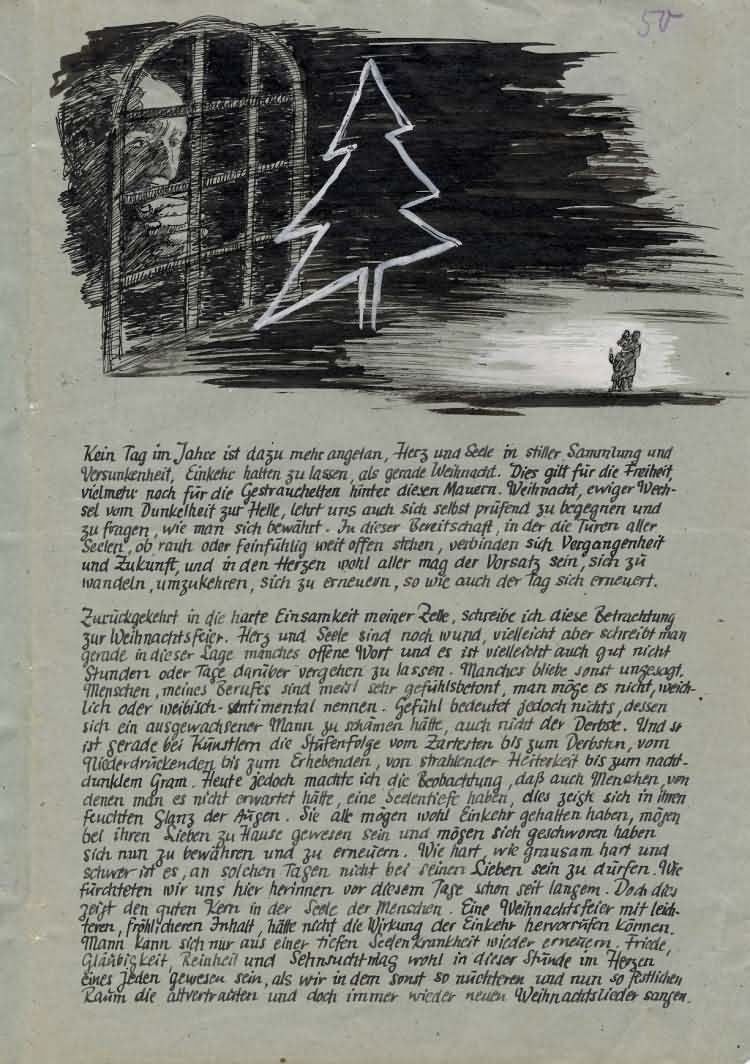 50
Kein Tag im Jahre ist dazu mehr angetan, Herz und Seele in stiller Sammlung und
Versunkenheit, Einkehr halten zu lassen, als gerade Weihnacht. Dies gilt für die Freiheit,
vielmehr noch für die Gestrauchelten hinter diesen Mauern. Weihnacht, ewiger Wech-
sel vom Dunkelheit zur Helle, lehrt uns auch sich selbst prüfend zu begegnen und
zu fragen, wie man sich bewährt. In dieser Bereitschaft, in der die Türen aller
Seelen, ob rauh oder feinfühlig weit offen stehen, verbinden sich Vergangenheit
und Zukunft, und in den Herzen wohl aller mag der Vorsatz sein, sich zu
wandeln, umzukehren, sich zu erneuern, so wie auch der Tag sich erneuert.
Zurückgekehrt in die harte Einsamkeit meiner Zelle, schreibe ich diese Betrachtung
zur Weihnachtsfeier. Herz und Seele sind noch wund, vielleicht aber schreibt man
gerade in dieser Lage manches offene Wort und es ist vielleicht auch gut nicht
Stunden oder Tage darüber vergehen zu lassen. Manches bliebe sonst ungesagt.
Menschen, meines Berufes sind meist sehr gefühlsbetont, man möge es nicht, weich-
lich oder weibisch-sentimental nennen. Gefühl bedeutet jedoch nichts, dessen
sich ein ausgewachsener Mann zu schämen hätte, auch nicht der Derbste. Und so
ist gerade bei Künstlern die Stufenfolge vom Zartesten bis zum Derbsten, vom
Niederdrückenden bis zum Erhebenden, von strahlender Heiterkeit bis zum nacht-
dunklem Gram. Heute jedoch machte ich die Beobachtung, daß auch Menschen, von
denen man es nicht erwartet hätte, eine Seelentiefe haben, dies zeigt sich in ihren
feuchten Glanz der Augen. Sie alle mögen wohl Einkehr gehalten haben, mögen
bei ihren Lieben zu Hause gewesen sein und mögen sich geschworen haben
sich nun zu bewähren und zu erneuern. Wie hart, wie grausam hart und
schwer ist es, an solchen Tagen nicht bei seinen Lieben sein zu dürfen. Wie
fürchteten wir uns hier herinnen vor diesem Tage schon seit langem. Doch dies
zeigt den guten Kern in der Seele der Menschen. Eine Weihnachtsfeier mit leich-
teren, fröhlicheren Inhalt, hätte nicht die Wirkung der Einkehr hervorrufen können.
Mann kann sich nur aus einer tiefen Seelenkrankheit wieder erneuern. Friede,
Gläubigkeit, Reinheit und Sehnsucht mag wohl in dieser Stunde im Herzen
eines jeden gewesen sein, als wir in dem sonst so nüchternen und nun so festlichen
Raum die altvertrauten und doch immer wieder neuen Weihnachtslieder sangen.